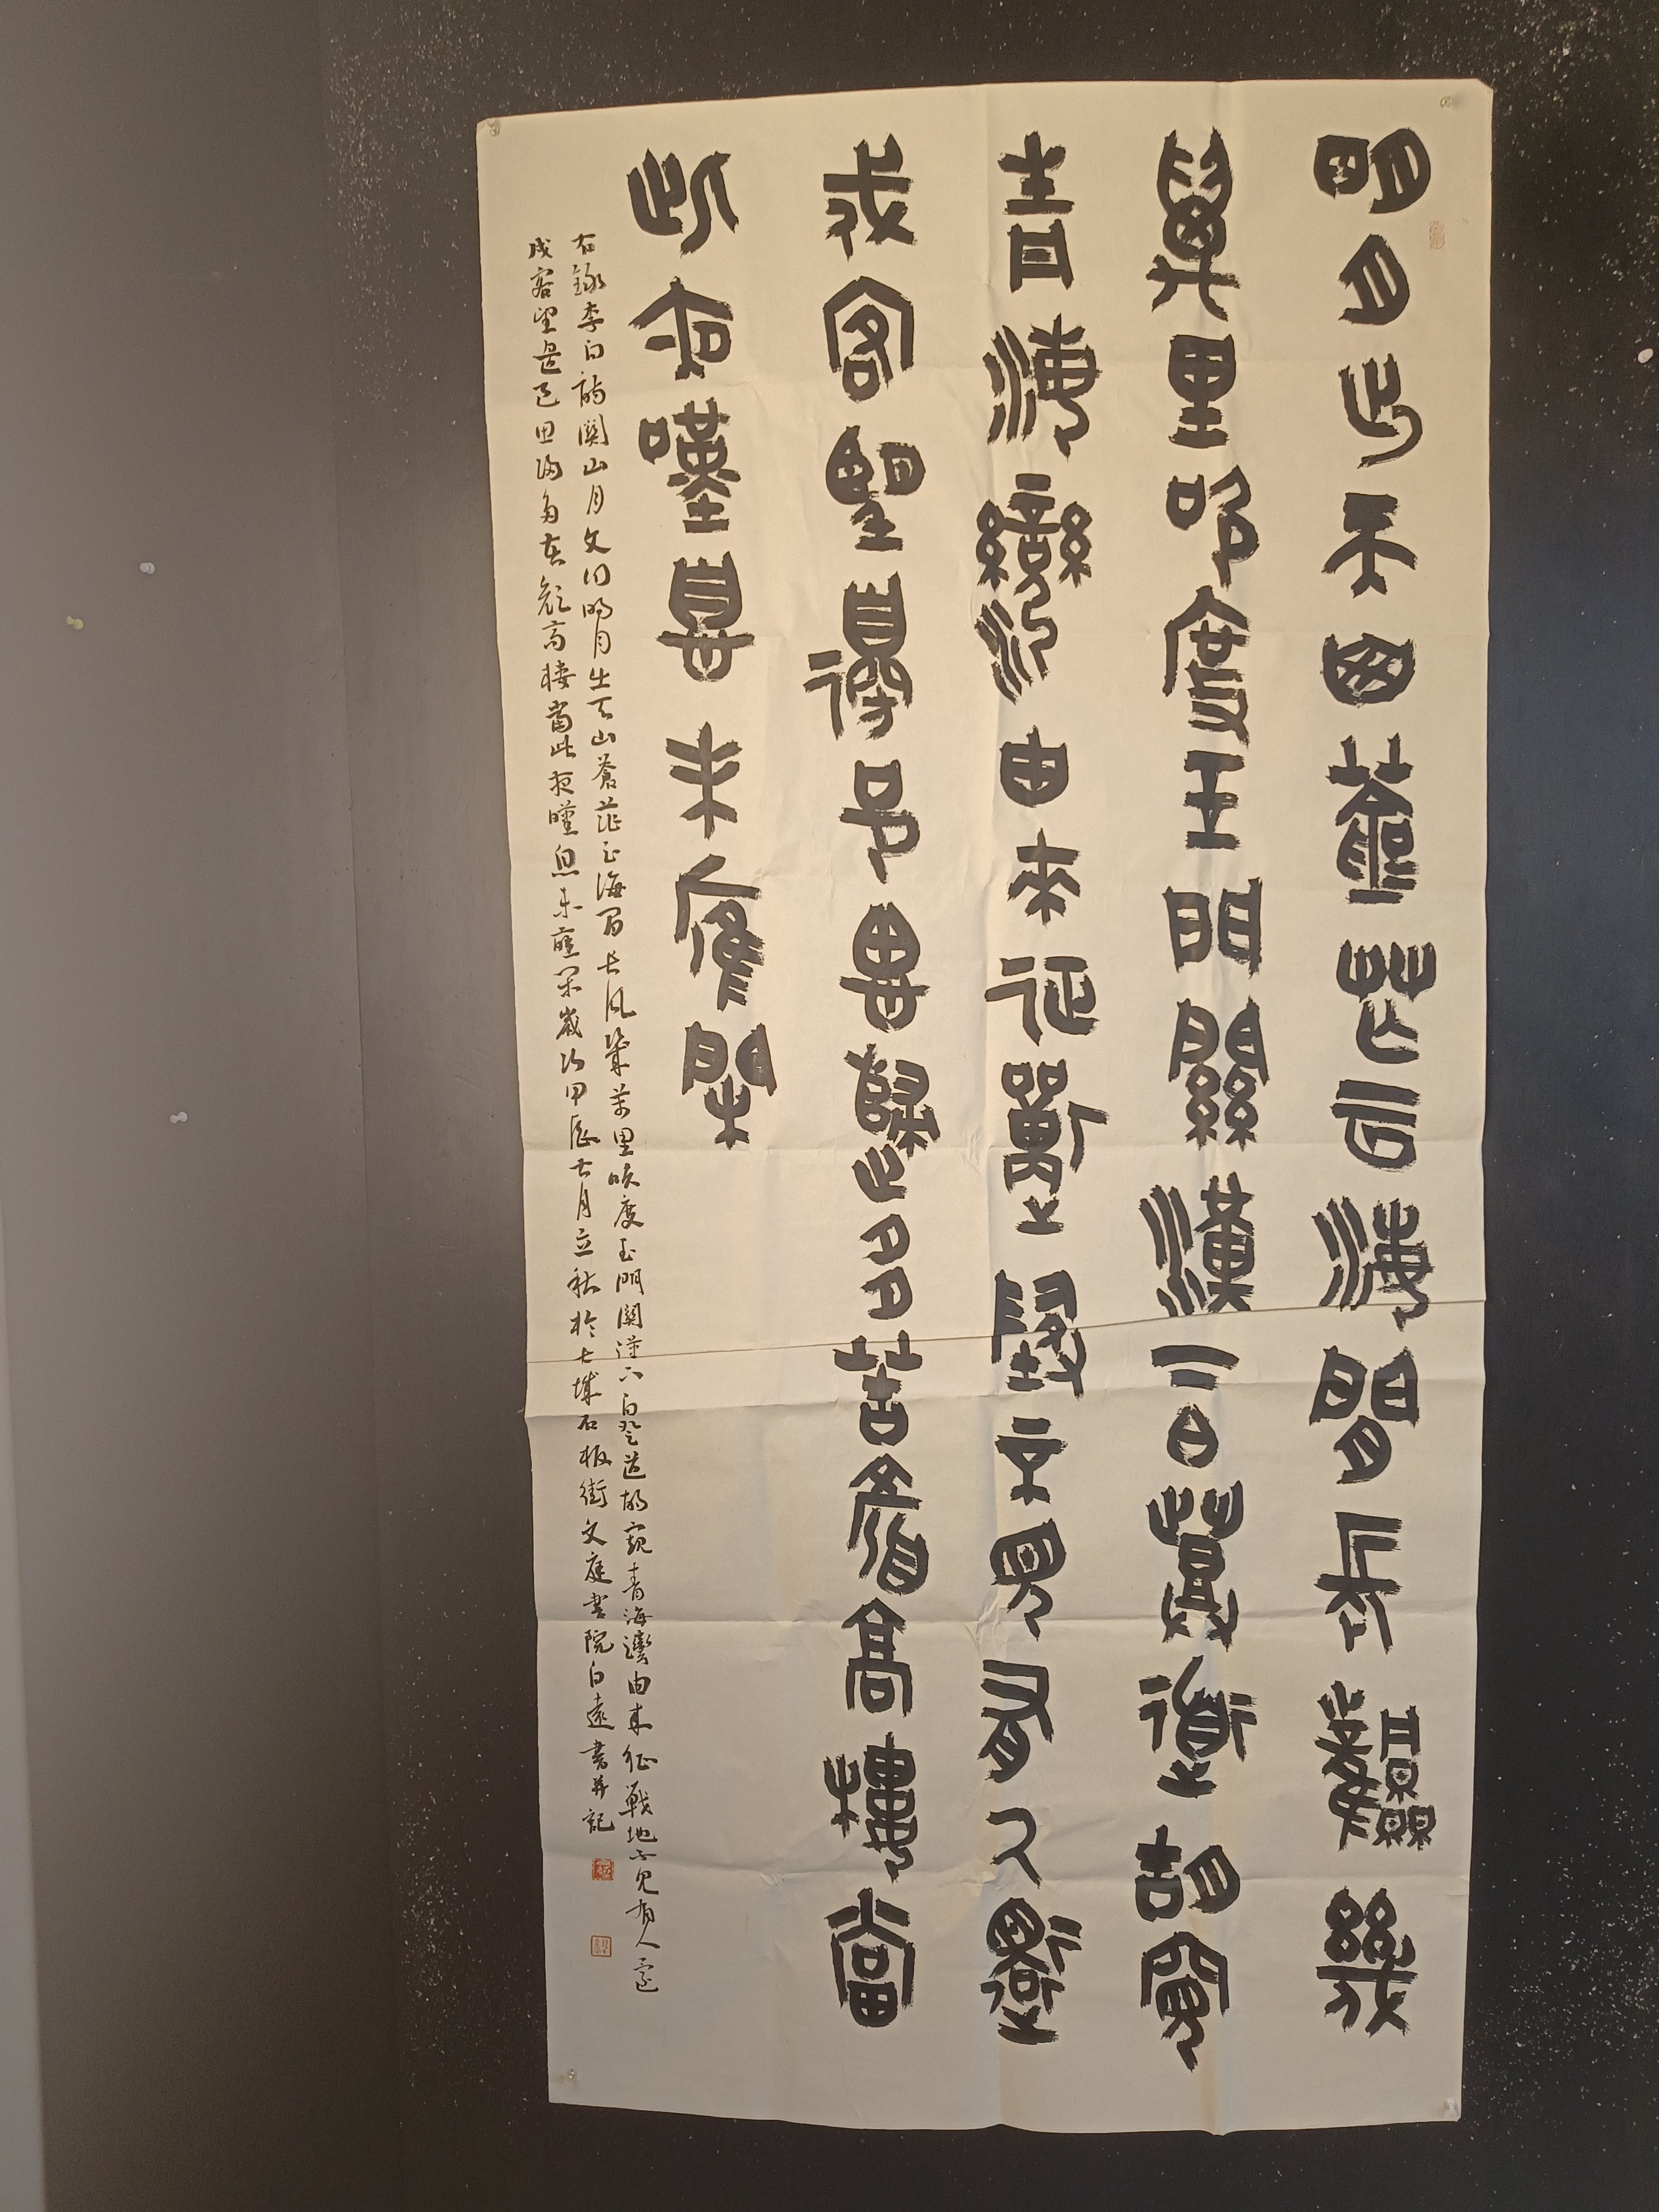 明月出天山蒼茫云海間長風幾
萬里吹度玉門關漢下白登道胡窺
青海灣由來征戰地不見有人還
戍客望邊邑思歸多苦顏高樓當
此夜嘆息未應閒
右錄李白詩關山月文曰明月出天山蒼茫云海間長風幾萬里吹度玉門關漢下白登道胡窺青海灣由來征戰地不見有人還
戍客望邊邑思歸多苦顏高樓當此夜嘆息未應閒歲次甲辰七月立秋於城石板街文庭書院白遠書并記